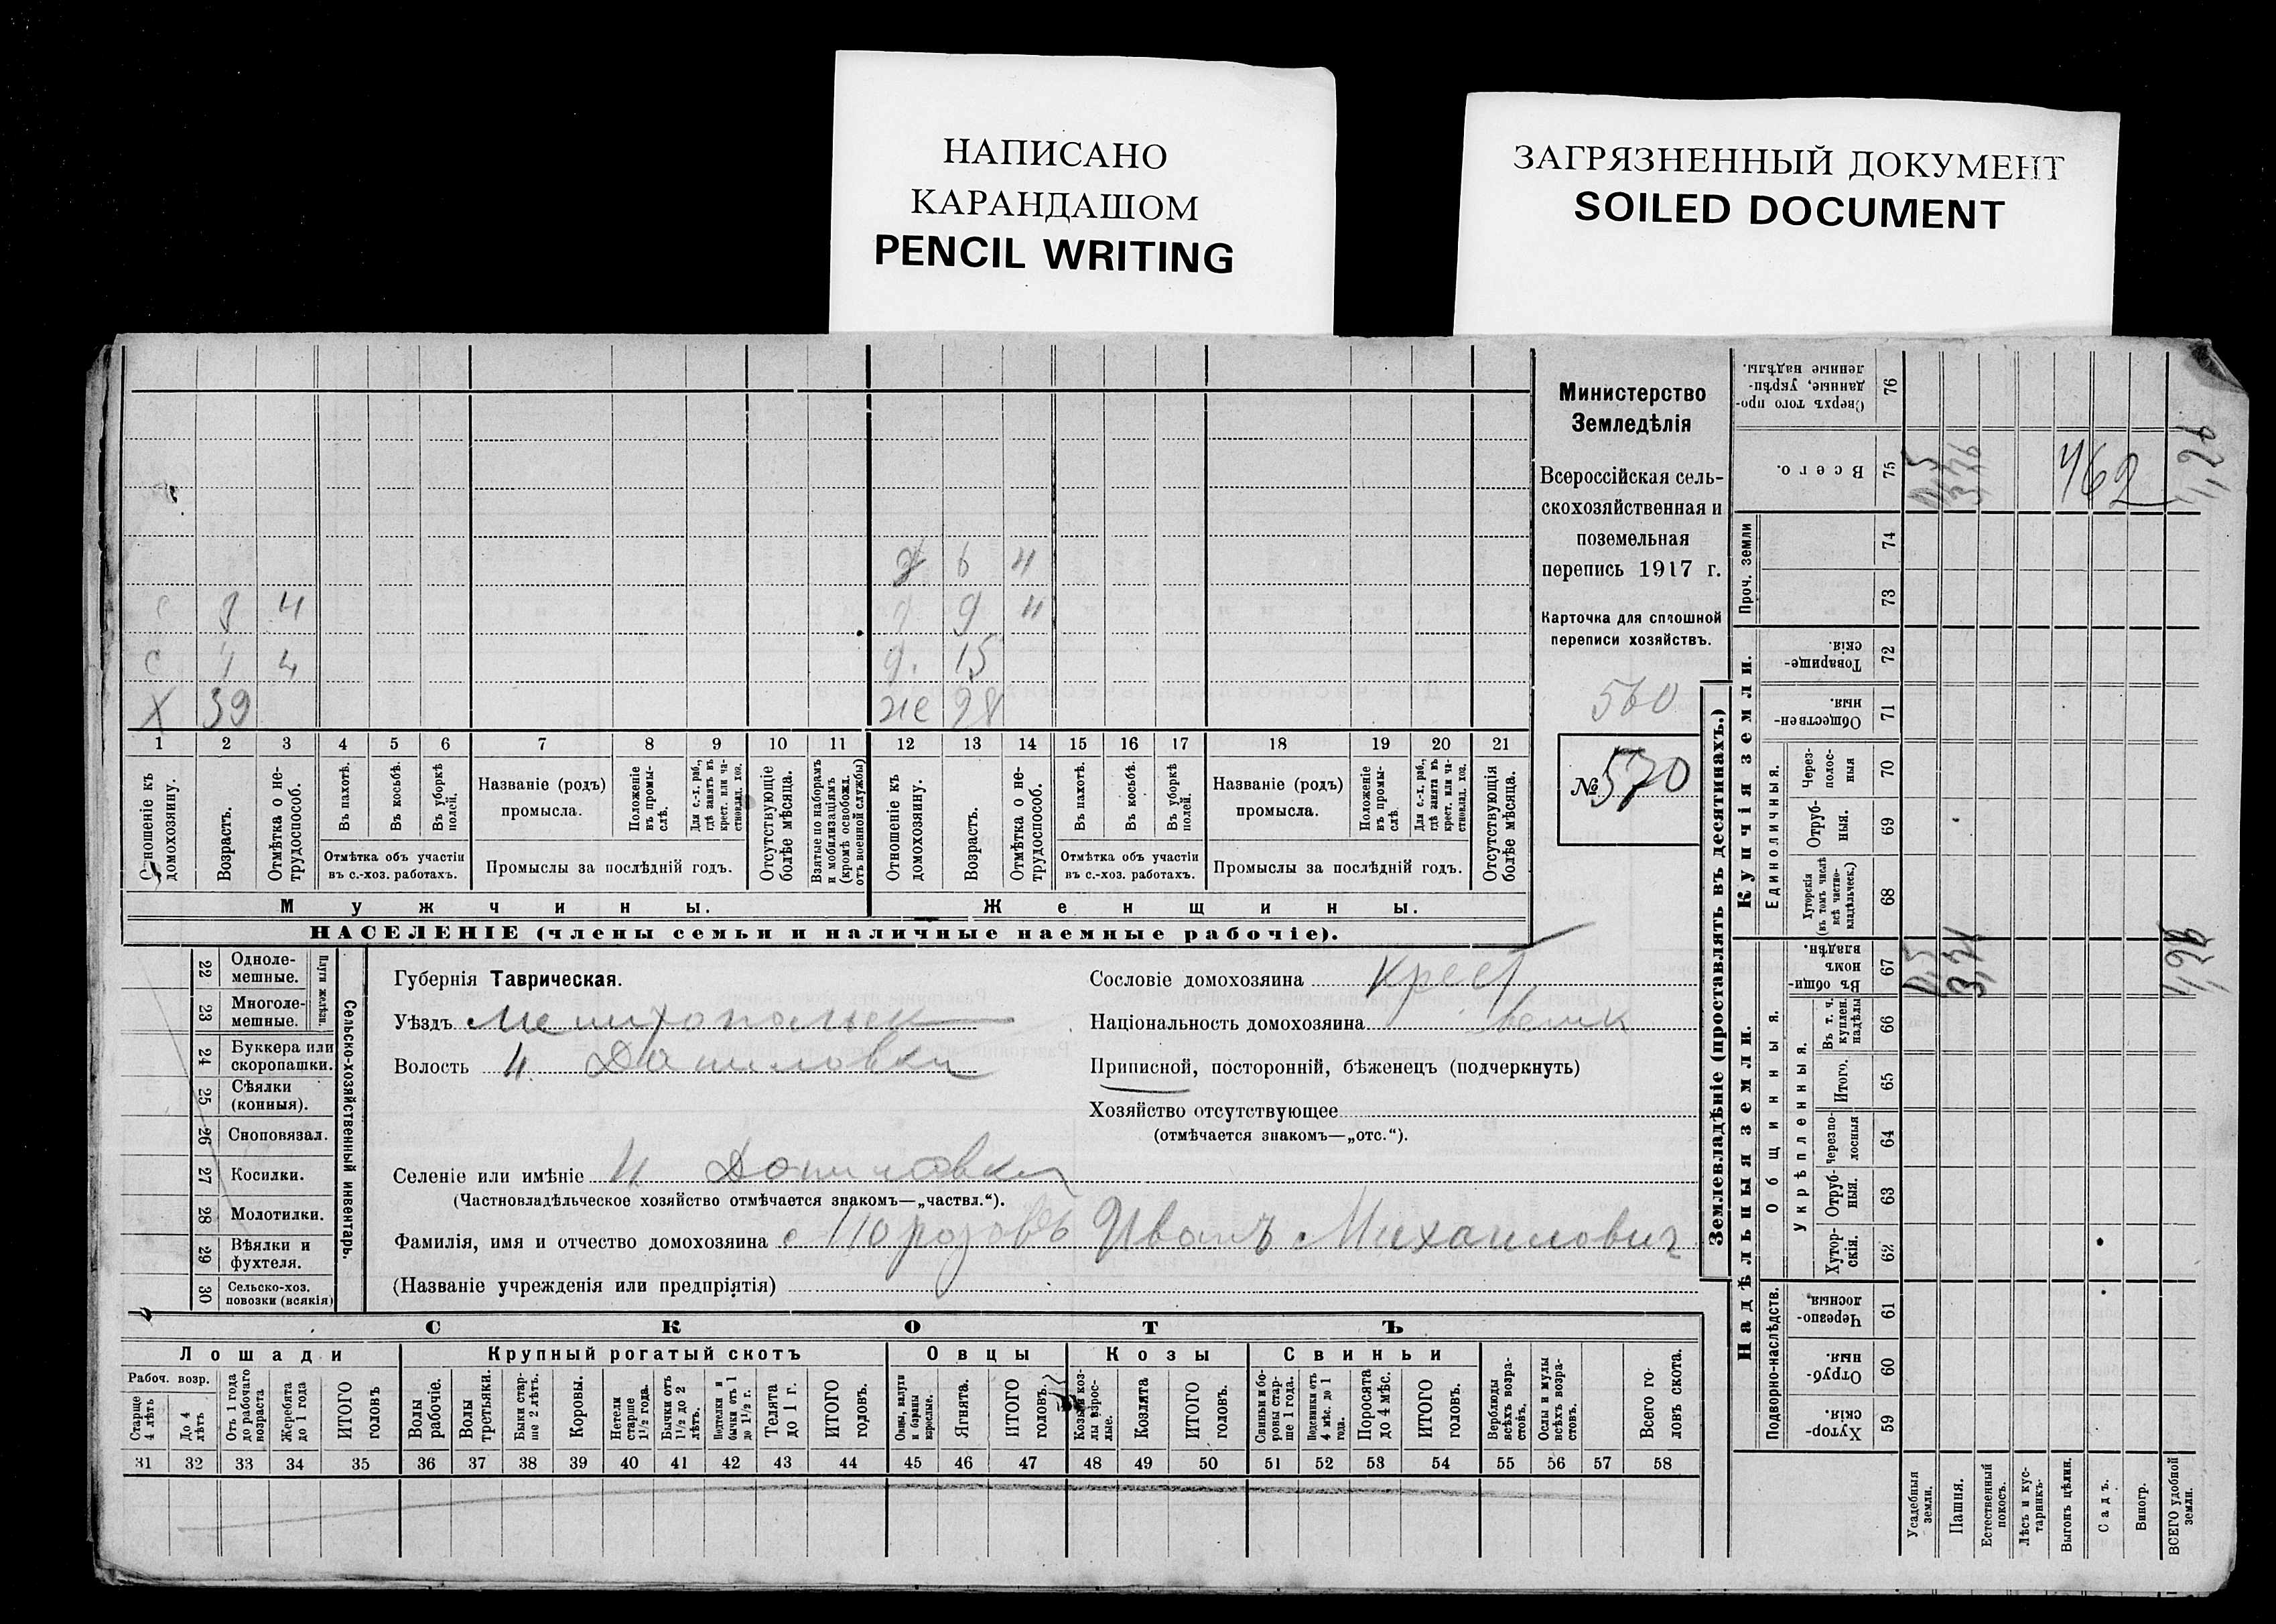 НАПИСАНО
КАРАНДАШОМ
PENCIL WRITING
ЗАГРЯЗНЕННЫЙ ДОКУМЕНТ
SOILED DOCUMENT
Министерство
Земледѣлія
Всероссійская сель-
скохозяйственная и
поземельная
перепись 1917 г.
Карточка для сплошной
переписи хозяйствъ.
560
№ 570
6 Ч
9 Ч
С Ч
С 4
д. 15
Х 39
же 28
1 2 3 4 5 6 7 8 9 10 11 12 13 14 15 16 17 18 19 20 21
Отношеніе къ домохозяину.
Возрастъ.
Отмѣтка о не-трудоспособ.
Въ пахотѣ.
Въ косьбѣ.
Въ уборкѣ полей.
Отмѣтка объ участіи
въ с.-хоз. работахъ.
Названіе (родъ)
промысла.
Положеніе въ промы-слѣ.
Для с.-х. раб., гдѣ занятъ въ крест. или ча-стновлад. хоз.
Промыслы за послѣдній годъ.
Отсутствующіе болѣе мѣсяца.
Взятые по наборамъ и мобилизаціямъ (кромѣ освобожд. отъ военной службы)
Отношеніе къ домохозяину.
Возрастъ.
Отмѣтка о не-трудоспособ.
Въ пахотѣ.
Въ косьбѣ.
Въ уборкѣ полей.
Отмѣтка объ участіи
въ с.-хоз. работахъ.
Названіе (родъ)
промысла.
Положеніе въ промы-слѣ.
Для с.-х. раб., гдѣ занята въ крест. или ча-стновлад. хоз.
Промыслы за послѣдній годъ.
Отсутствующія болѣе мѣсяца.
Мужчины.
Женщины.
НАСЕЛЕНІЕ (члены семьи и наличные наемные рабочіе).
22 Одноле-мешные.
23 Многоле-мешные.
Плуги желѣзн.
24 Буккера или скоропашки.
25 Сѣялки (конныя).
26 Сноповязал.
27 Косилки.
28 Молотилки.
29 Вѣялки и фухтеля.
30 Сельско-хоз. повозки (всякія)
Сельско-хозяйственный инвентарь.
Губернія Таврическая.
Уѣздъ Мелитопольск
Волость Н. Даниловки
Селеніе или имѣніе Н. Даниловки
(Частновладѣльческое хозяйство отмѣчается знакомъ—„частвл.“).
Фамилія, имя и отчество домохозяина Морозовъ Иванъ Михаилович
(Названіе учрежденія или предпріятія)
Сословіе домохозяина крест
Національность домохозяина велик
Приписной, посторонній, бѣженецъ (подчеркнуть)
Хозяйство отсутствующее
(отмѣчается знакомъ—„отс.“).
СКОТЪ
Лошади
Крупный рогатый скотъ
Овцы
Козы
Свиньи
Рабоч. возр.
Старше 4 лѣтъ
До 4 лѣтъ
Отъ 1 года до рабочаго возраста
Жеребята до 1 года
ИТОГО головъ
Волы рабочіе.
Волы третьяки.
Быки стар-ше 2 лѣтъ.
Коровы.
Нетели старше 1½ года.
Бычки отъ 1½ до 2 лѣтъ.
Подтелки и бычки отъ 1 до 1½ г.
Телята до 1 г.
ИТОГО головъ.
Овцы, валухи и бараны взрослые.
Ягнята.
ИТОГО головъ.
Козы и коз-лы взрос-лые.
Козлята
ИТОГО головъ.
Свиньи и бо-ровы стар-ше 1 года.
Подсвинки отъ 4 мѣс. до 1 года.
Поросята до 4 мѣс.
ИТОГО головъ.
Верблюды всѣхъ возра-стовъ.
Ослы и мулы всѣхъ возра-стовъ.
Всего го-ловъ скота.
31 32 33 34 35 36 37 38 39 40 41 42 43 44 45 46 47 48 49 50 51 52 53 54 55 56 57 58
Землевладѣніе (проставлять въ десятинахъ.)
Надѣльныя земли.
Купчія земли.
Проч. земли
Сверхъ того про-данные, укрѣп-ленные надѣлы. 76
Всего. 75
74
73
Товарище-скія. 72
Обществен-ныя. 71
Единоличныя.
Через-полос-ныя 70
Отруб-ныя. 69
Хуторскія (въ томъ числѣ всѣ частно-владѣльческ.) 68
Общинныя.
Въ общин-номъ владѣн. 67
Укрѣпленныя.
Въ т. ч. куплен. надѣлы 66
Итого. 65
Черезпо-лосныя 64
Отруб-ныя. 63
Хутор-скія. 62
Подворно-наслѣдств.
Черезпо-лосныя. 61
Отруб-ныя. 60
Хутор-скія. 59
Усадебныя земли.
Пашня.
Естественный покосъ.
Лѣсъ и кус-тарникъ.
Выгонъ цѣлин.
Садъ.
Виногр.
ВСЕГО удобной земли.
462